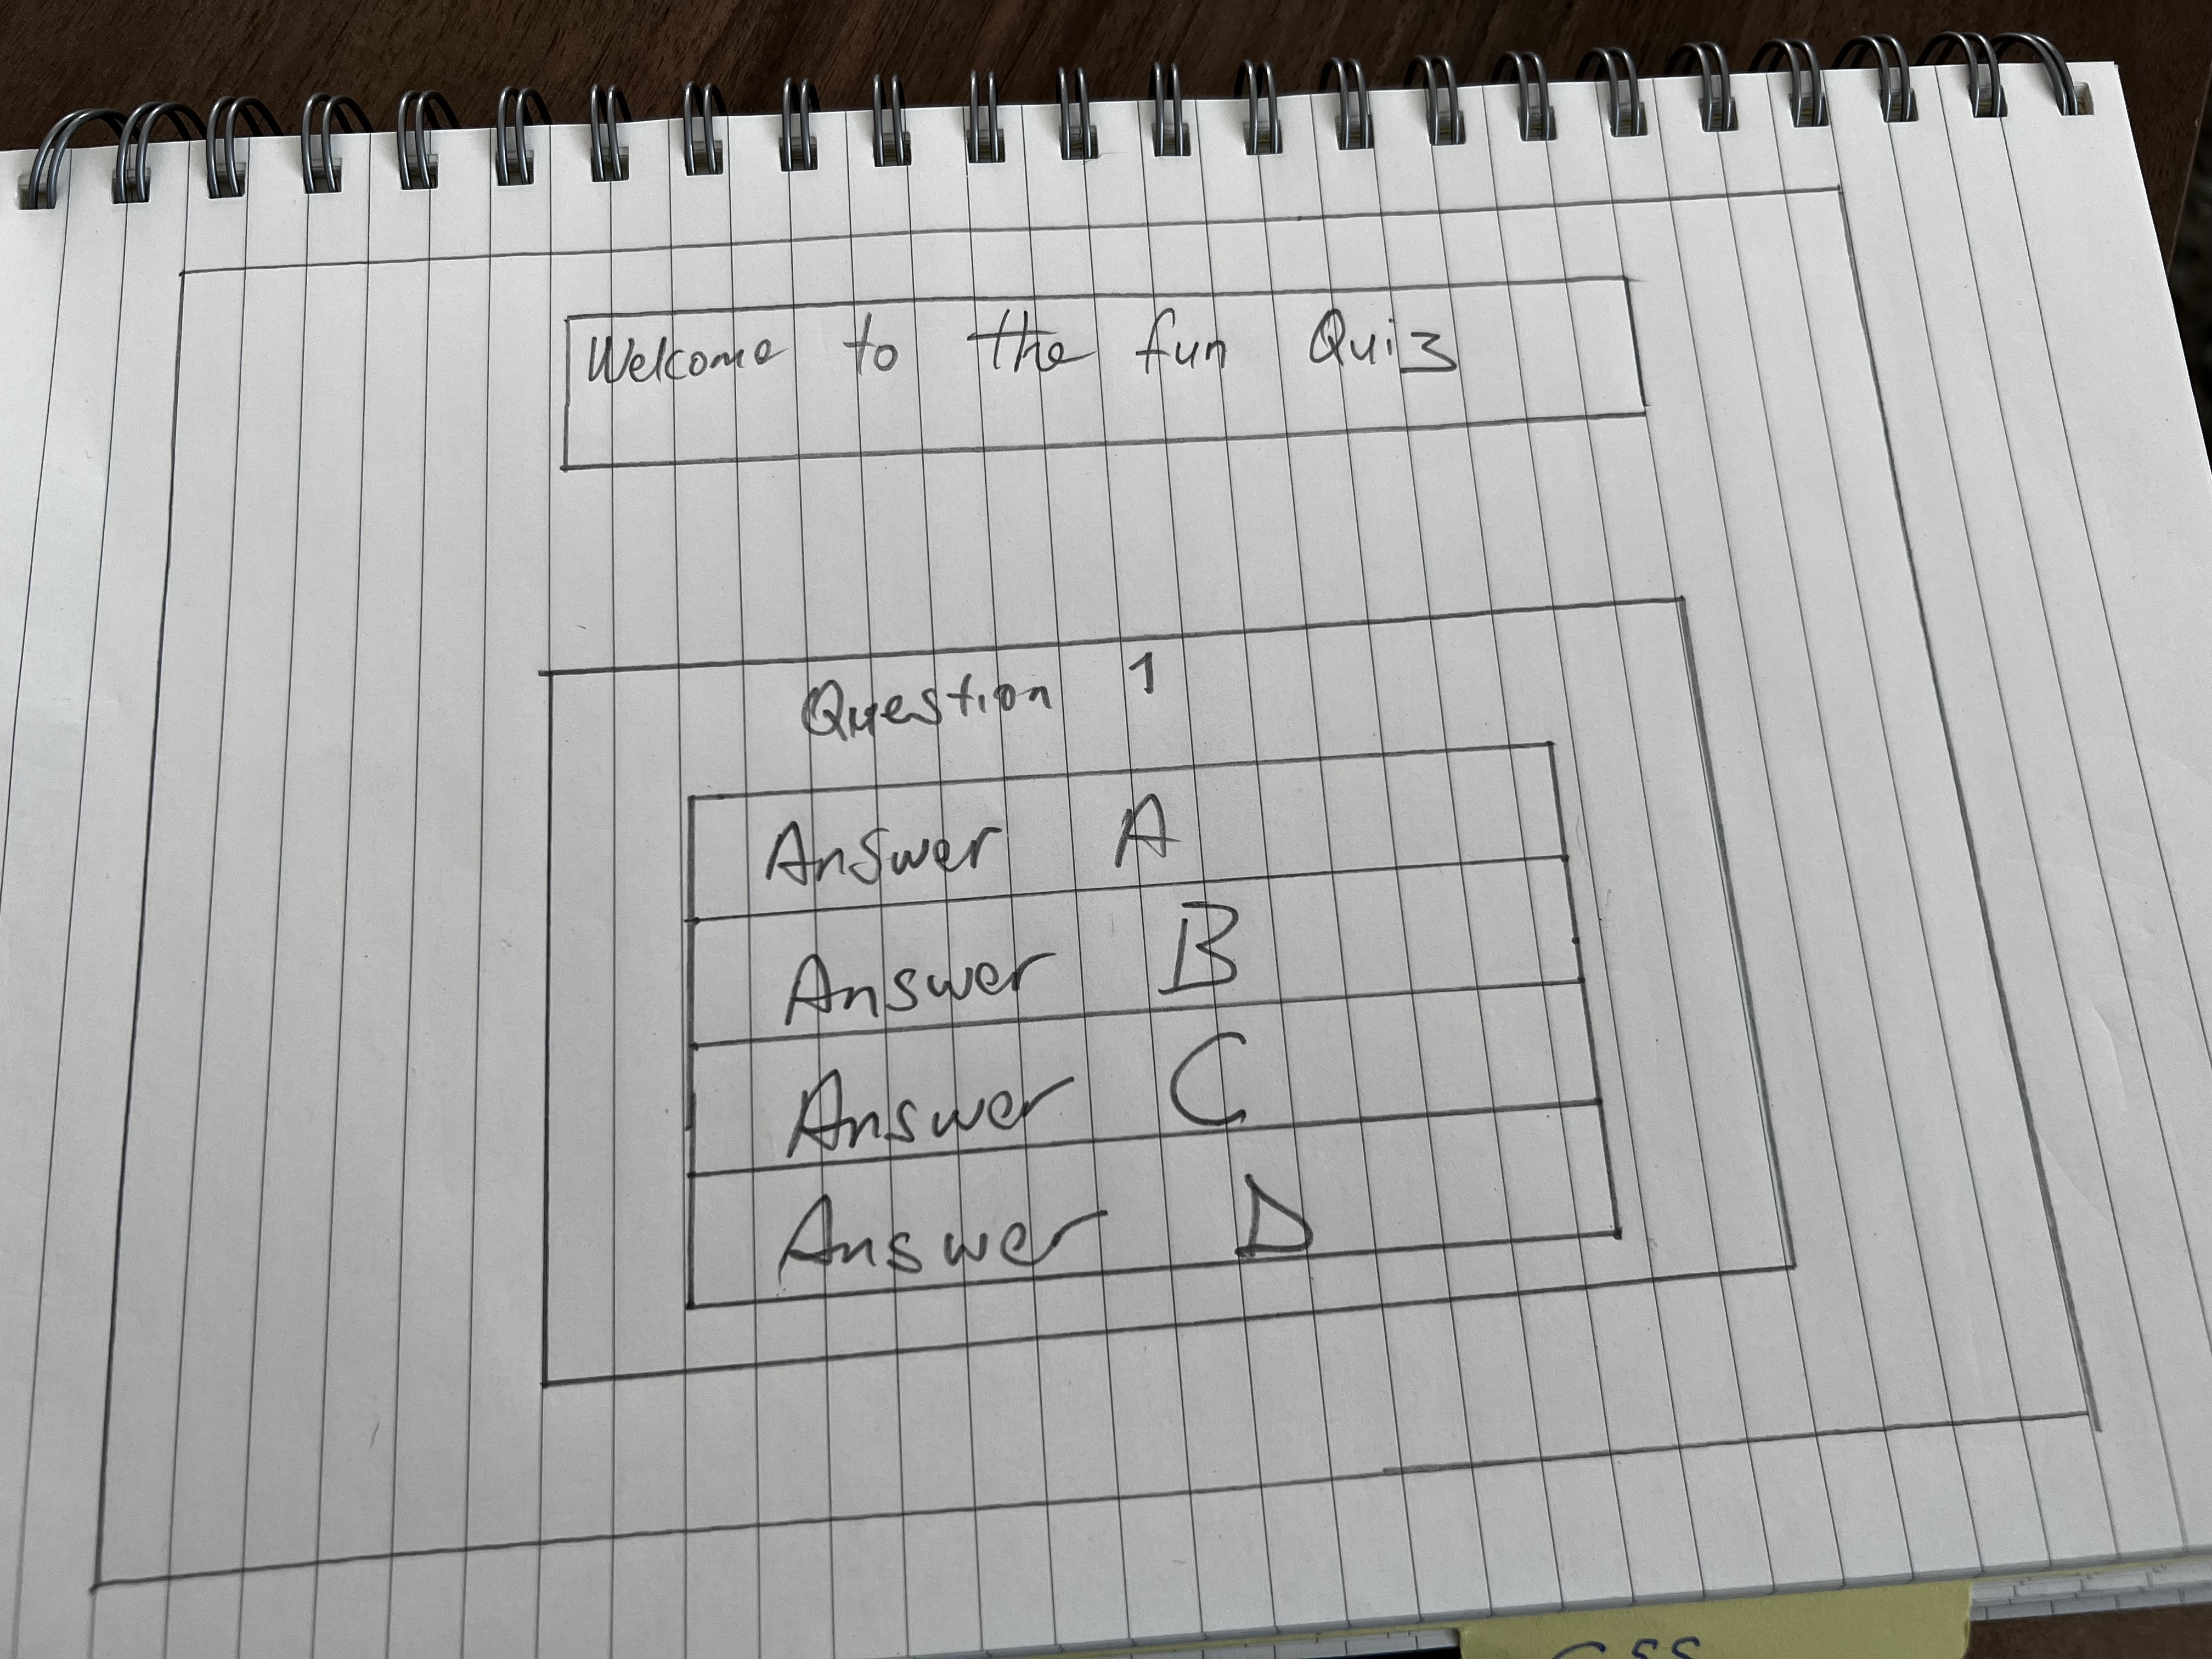 Welcome to the fun Quiz
Question 1
Answer A
Answer B
Answer C
Answer D
CSS